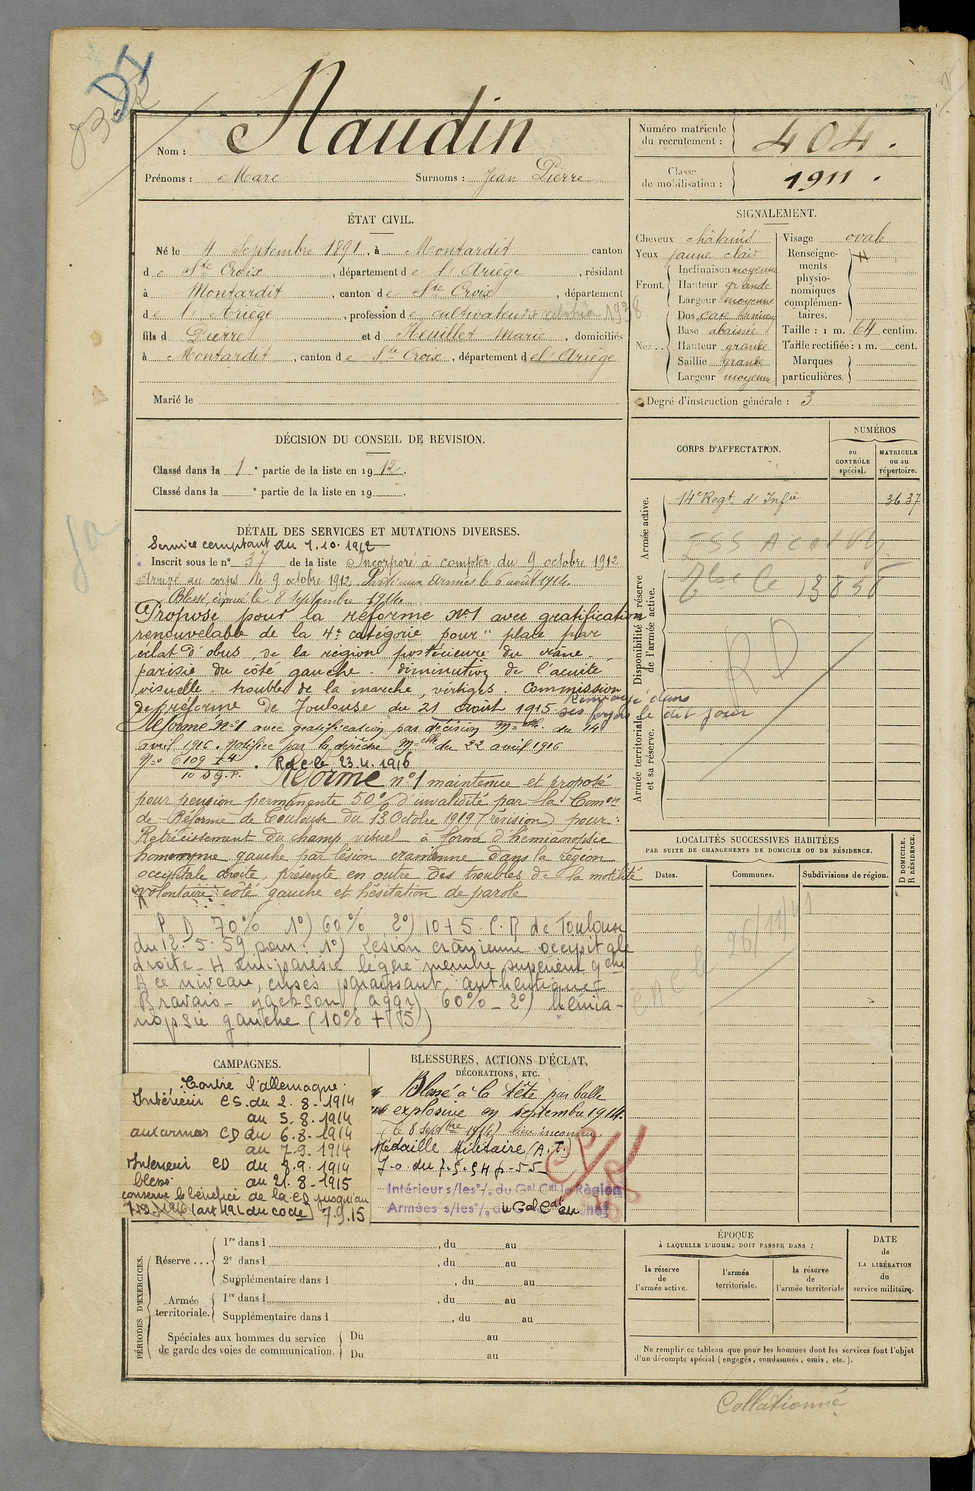 DI
Naudin
Nom :
Prénoms : Marc Surnoms : Jean Pierre
Numéro matricule du recrutement : 404.
Classe de mobilisation : 1911.
ÉTAT CIVIL.
Né le 4 Septembre 1891, à Montardit canton
de Ste Croix, département de l'Ariège, résidant
à Montardit, canton de Ste Croix, département
de l'Ariège, profession de cultivateur 1938
fils de Pierre et d Heuillet Marie, domiciliés
à Montardit, canton de Ste Croix, département de l'Ariège
Marié le
SIGNALEMENT.
Cheveux châtains
Yeux jaune clair
Front. Inclinaison moyenne
Hauteur grande
Largeur moyenne
Nez... Dos cave
Base abaissée
Hauteur grande
Saillie grande
Largeur moyenne
Visage ovale
Renseignements physionomiques complémentaires.
Taille : 1 m. 64 centim.
Taille rectifiée : 1 m. cent.
Marques particulières.
Degré d'instruction générale : 3
DÉCISION DU CONSEIL DE REVISION.
Classé dans la 1e partie de la liste en 1912.
Classé dans la e partie de la liste en 19
CORPS D'AFFECTATION.
NUMÉROS
au CONTRÔLE spécial.
MATRICULE ou au répertoire.
Armée active.
14e Regt d'Infie 3637
Disponibilité et réserve de l'armée active.
13858
RD
Armée territoriale et sa réserve.
DÉTAIL DES SERVICES ET MUTATIONS DIVERSES.
Service comptant du 1.10.1912
Inscrit sous le n° 37 de la liste Incorporé à compter du 9 octobre 1912
Arrivé au corps le 9 octobre 1912. Parti aux Armées le 6 août 1914.
Blessé, évacué le 8 septembre 1914
Proposé pour la réforme N°1 avec gratification
renouvelable de la 4e catégorie pour "plaie par
éclat d'obus, de la région postérieure du crâne
parésie du côté gauche. diminution de l'acuité
visuelle. troubles de la marche, vertiges. Commission
de réforme de Toulouse du 21 Août 1915 Renvoyé dans
ses foyers le dit jour
Réformé n°1 avec gratification par décision Melle du 14
avril 1916. Notifiée par la dépêche Melle du 22 avril 1916
N° 6109 I4 / 10 D.g.P. . R le 23.4.1916
Réforme n°1 maintenue et proposé
pour pension permanente 50% d'invalidité par la Comon
de Réforme de Toulouse du 13 Octobre 1919 (révision) pour :
Rétrécissement du champ visuel à forme d'hémianopsie
homonyme gauche par lésion cranienne dans la région
occipitale droite, présente en outre des troubles de la motilité
volontaire côté gauche et hésitation de parole
P.D. 70% 1°) 60% 2°) 10+5. C.R. de Toulouse
du 12.5.59 pour 1°) Lésion crânienne occipitale
droite - Hémiparésie légère membre supérieur gche
A ce niveau, crises paraissant authentiques
Bravais-Jackson (aggr) 60% - 2°) Hémia-
nopsie gauche (10% + 5)
LOCALITÉS SUCCESSIVES HABITÉES
PAR SUITE DE CHANGEMENTS DE DOMICILE OU DE RÉSIDENCE.
Dates.
Communes.
Subdivisions de région.
D DOMICILE. R RÉSIDENCE.
CAC le 26/11/41
CAMPAGNES.
Contre l'allemagne.
Intérieur CS du 2.8.1914
au 5.8.1914
aux armées CD du 6.8.1914
au 7.9.1914
Intérieur CD du 8.9.1914
blessé au 21.8.1915
conserve le bénéfice de la CD jusqu'au
(art 191 du code) 7.9.15
BLESSURES, ACTIONS D'ÉCLAT,
DÉCORATIONS, ETC.
Blessé à la tête par balle
explosive en Septembre 1914.
(le 8 septbre 1914) lieu inconnu
Médaille Militaire (A.P.)
J.O. du 7.5.54 p-55
Intérieur s/les o/. du Gal Cdt le Région
Armées s/les o/. du Gal Cdt en Chef
PÉRIODES D'EXERCICES.
Réserve ... 1re dans l , du au
2e dans l , du au
Supplémentaire dans l , du au
Armée territoriale. 1re dans l , du au
Supplémentaire dans l , du au
Spéciales aux hommes du service de garde des voies de communication. Du au
Du au
ÉPOQUE
À LAQUELLE L'HOMME DOIT PASSER DANS :
la réserve de l'armée active.
l'armée territoriale.
la réserve de l'armée territoriale
DATE de LA LIBÉRATION du service militaire.
Ne remplir ce tableau que pour les hommes dont les services font l'objet
d'un décompte spécial (engagés, condamnés, omis, etc.).
Collationné